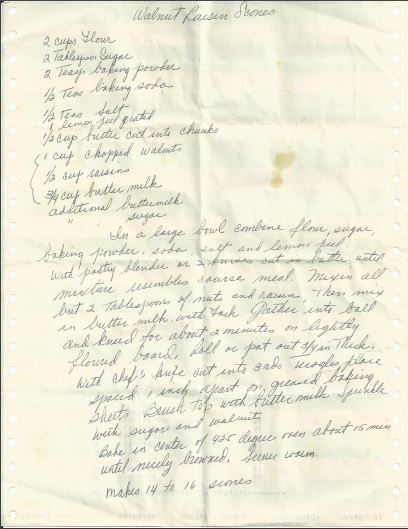 Walnut Raisin Scones
2 cups Flour
2 Tablespoon Sugar
2 Teasp baking powder
1/2 Teas baking soda
1/2 Teas Salt
1 lemon peel grated
1/2 cup butter cut into chunks
1 cup chopped walnuts
1/2 cup raisins
3/4 cup butter milk
additional buttermilk
" sugar
In a large bowl combine flour, sugar,
baking powder, soda, salt and lemon peel.
With pastry blender or 2 knives cut in butter until
mixture resembles course meal. Mix in all
but 2 Tablespoons of nuts and raisins. Then mix
in butter milk with Fork. Gather into ball
and knead for about 2 minutes on lightly
floured board. Roll or pat out 3/4 in Thick.
With chef's knife cut into 3rds place
spaced 1 inch apart on greased baking
Sheets. Brush Top with butter milk Sprinkle
with sugar and walnuts
Bake in center of 425 degree oven about 15 min
until nicely browned. Serve warm.
Makes 14 to 16 scones